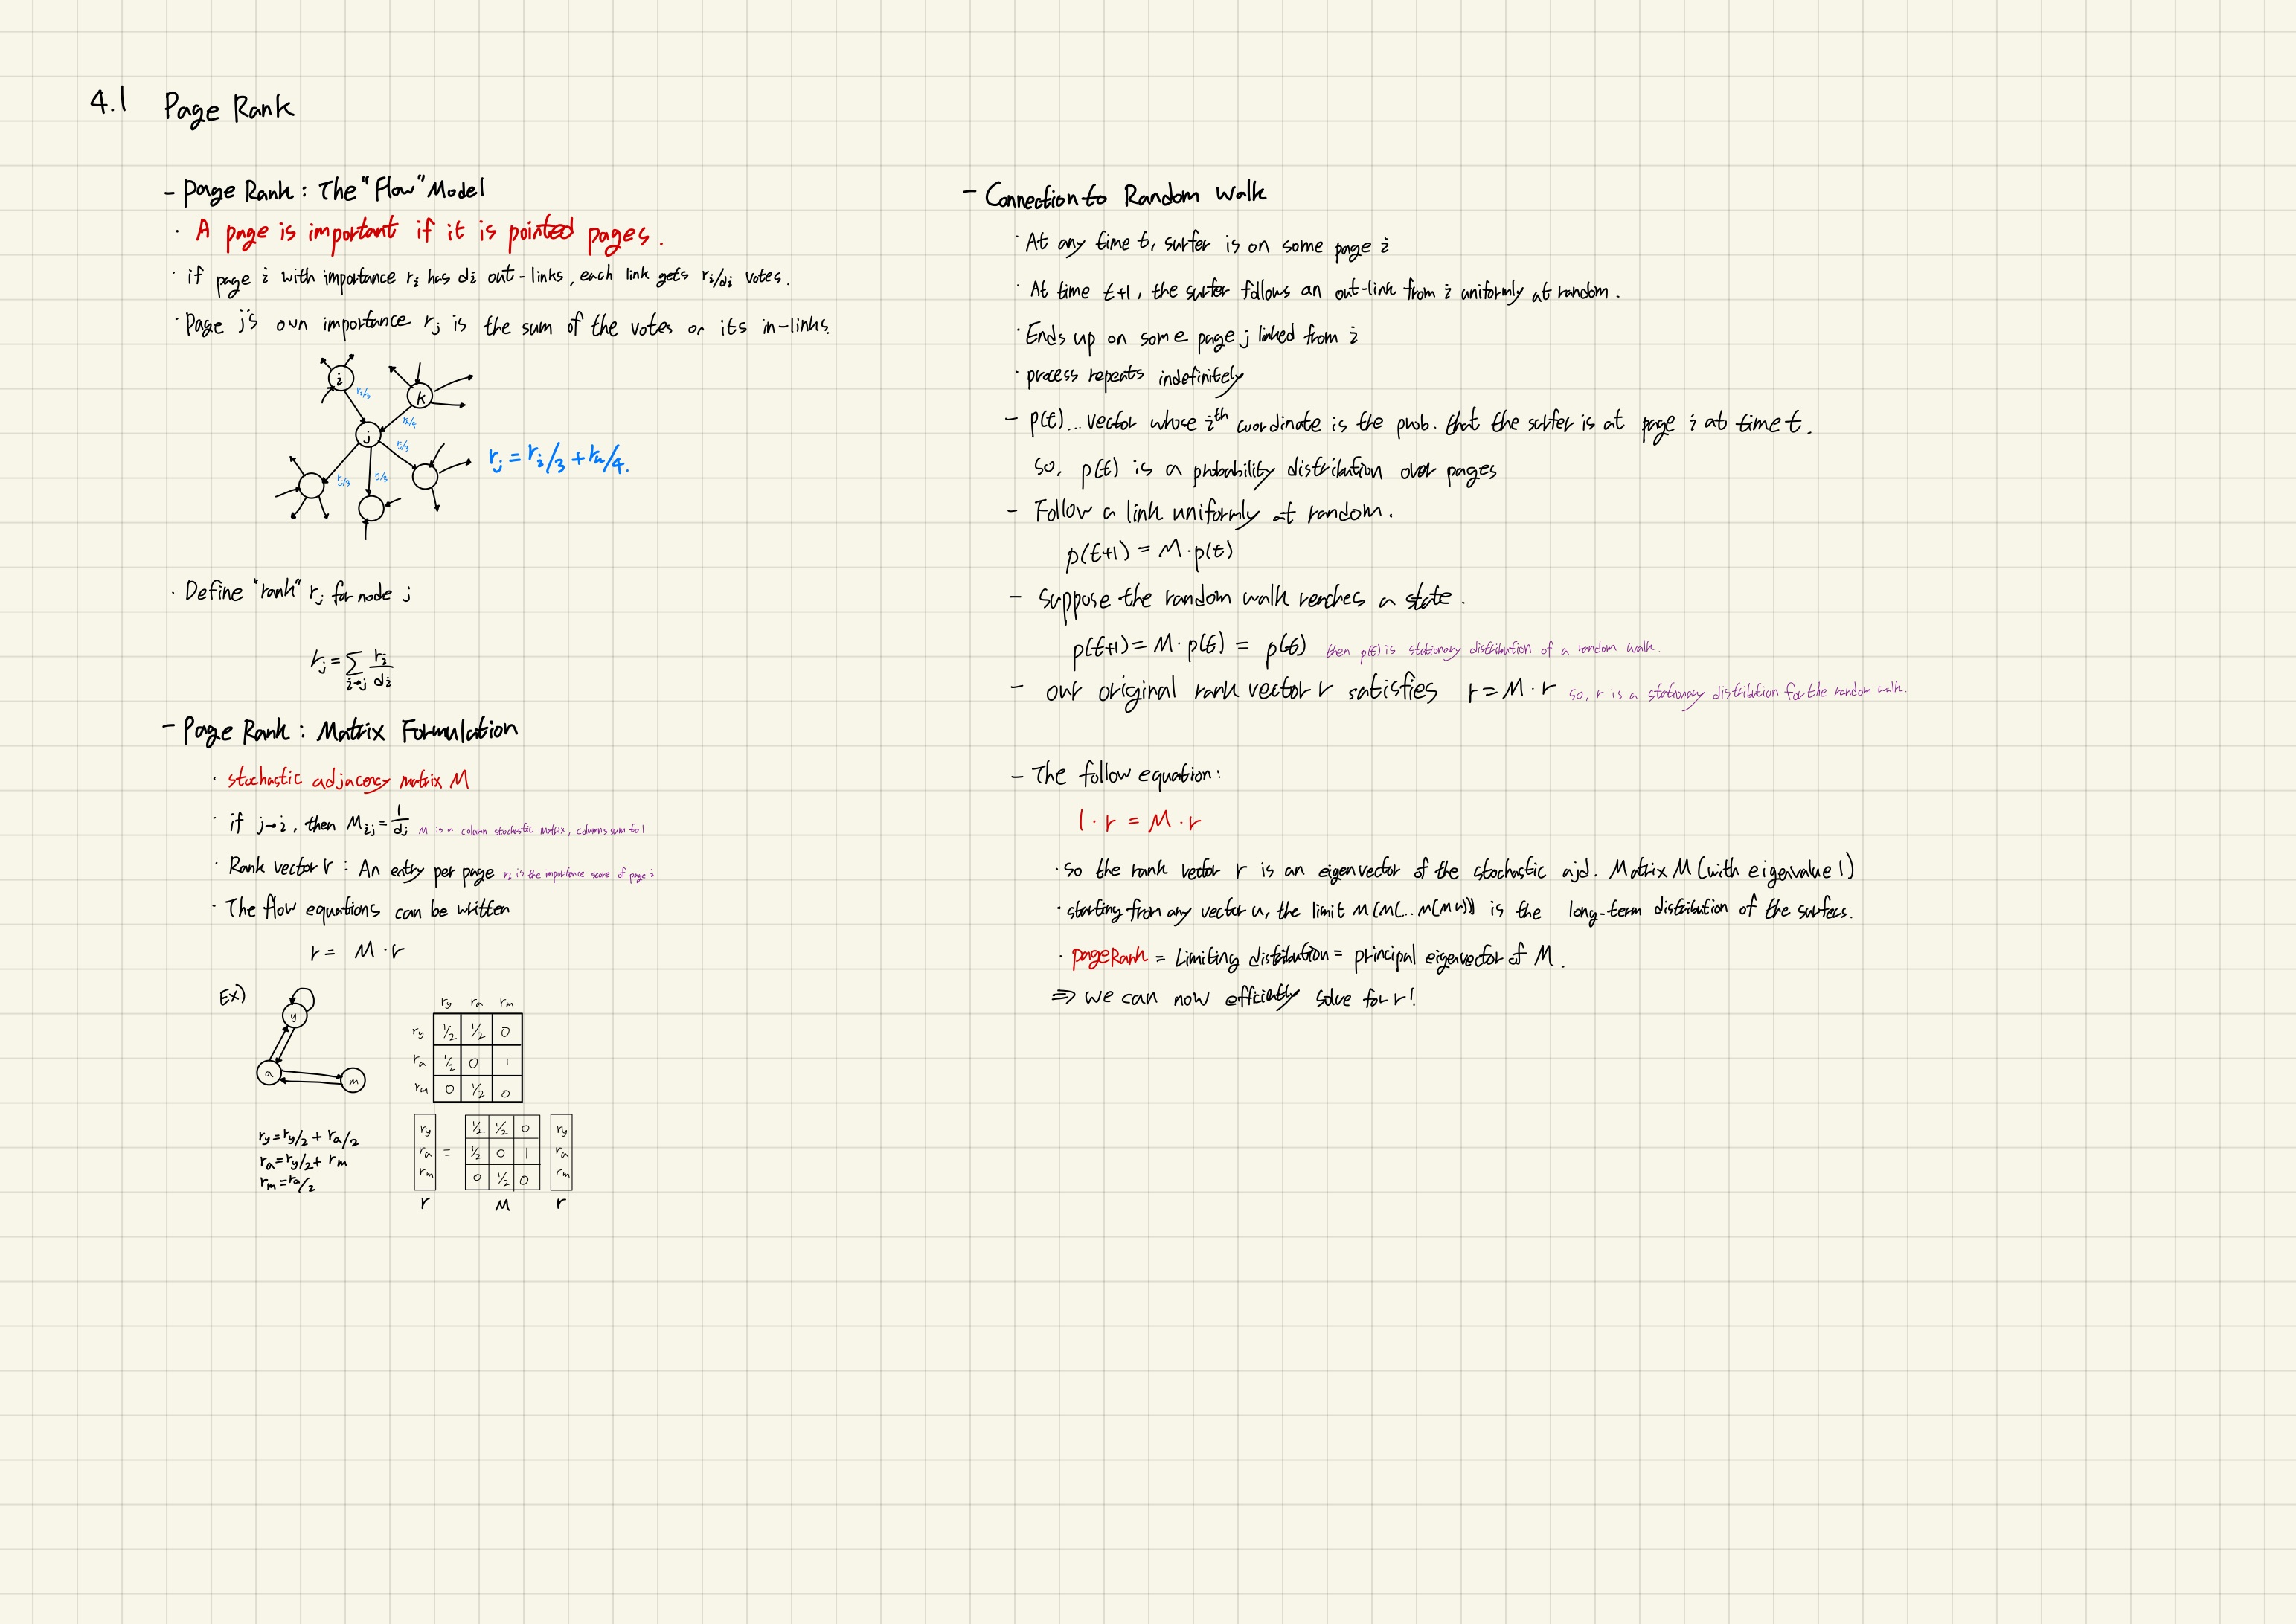 4.1 Page Rank
- Page Rank : The "Flow" Model
· A page is important if it is pointed pages.
· if page i with importance ri has di out-links, each link gets ri/di votes.
· Page j's own importance rj is the sum of the votes on its in-links.
i
k
ri/3
rk/4
j
rj/3
rj/3
rj/3
rj = ri/3 + rk/4.
· Define "rank" rj for node j
rj = Σ i→j ri/di
- Page Rank : Matrix Formulation
· stochastic adjacency matrix M
· if j→i, then Mij = 1/dj M is a column stochastic matrix, columns sum to 1
· Rank vector r : An entry per page ri is the importance score of page i
· The flow equations can be written
r = M · r
Ex)
y
a
m
ry ra rm
ry 1/2 1/2 0
ra 1/2 0 1
rm 0 1/2 0
ry = ry/2 + ra/2
ra = ry/2 + rm
rm = ra/2
ry 1/2 1/2 0 ry
ra = 1/2 0 1 ra
rm 0 1/2 0 rm
r M r
- Connection to Random Walk
· At any time t, surfer is on some page i
· At time t+1, the surfer follows an out-link from i uniformly at random.
· Ends up on some page j linked from i
· process repeats indefinitely
- p(t)... vector whose ith coordinate is the prob. that the surfer is at page i at time t.
so, p(t) is a probability distribution over pages
- Follow a link uniformly at random.
p(t+1) = M·p(t)
- suppose the random walk reaches a state.
p(t+1) = M· p(t) = p(t) then p(t) is stationary distribution of a random walk.
- our original rank vector r satisfies r = M · r so, r is a stationary distribution for the random walk.
- The follow equation:
1 · r = M · r
· so the rank vector r is an eigenvector of the stochastic ajd. Matrix M (with eigenvalue 1)
· starting from any vector u, the limit M(M(...M(Mu))) is the long-term distribution of the surfers.
· pageRank = Limiting distribution = principal eigenvector of M.
⇒ we can now efficiently solve for r!